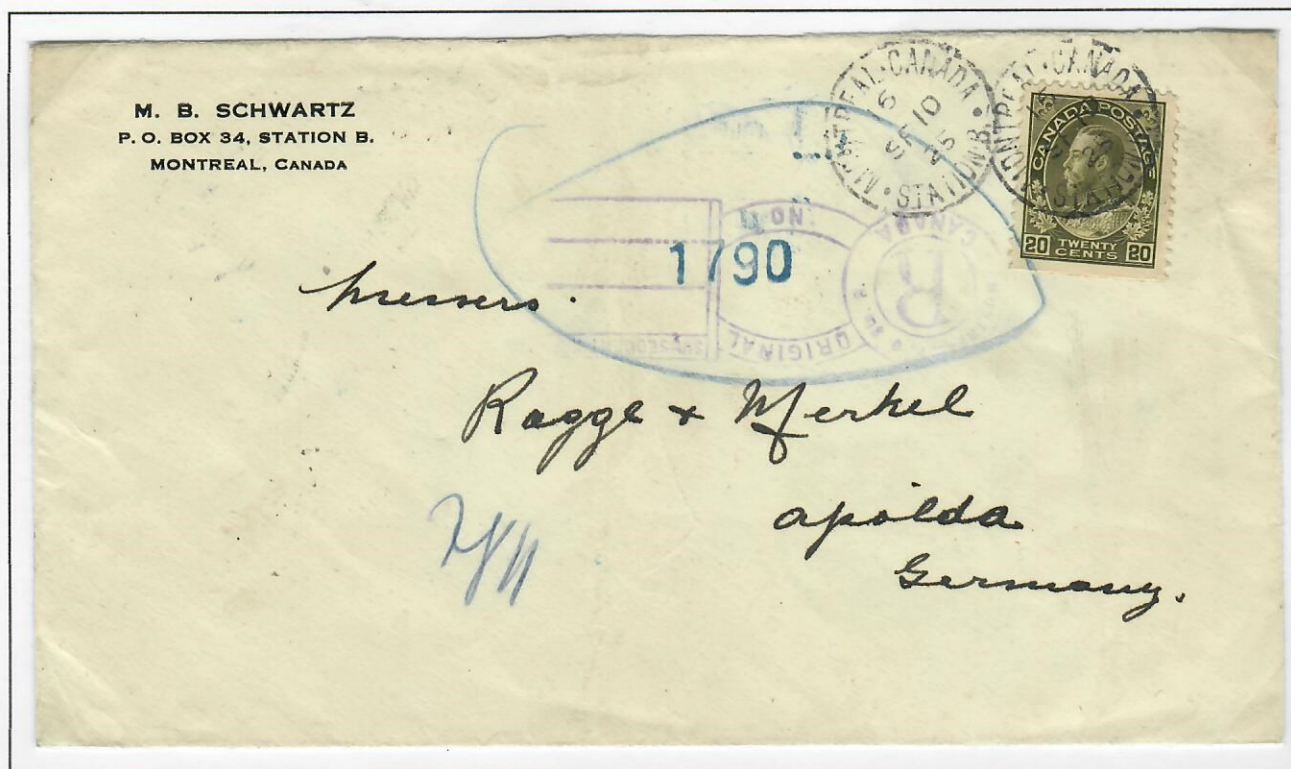 M. B. SCHWARTZ
P. O. BOX 34, STATION B.
MONTREAL, CANADA
MONTREAL · CANADA · STATION B ·
6
SP 10
25
MONTREAL · CANADA
STATION B
CANADA POSTAGE
20 TWENTY CENTS 20
CANADA
R
No
ORIGINAL
1790
Messers.
Ragge & Merkel
Apolda
Germany.